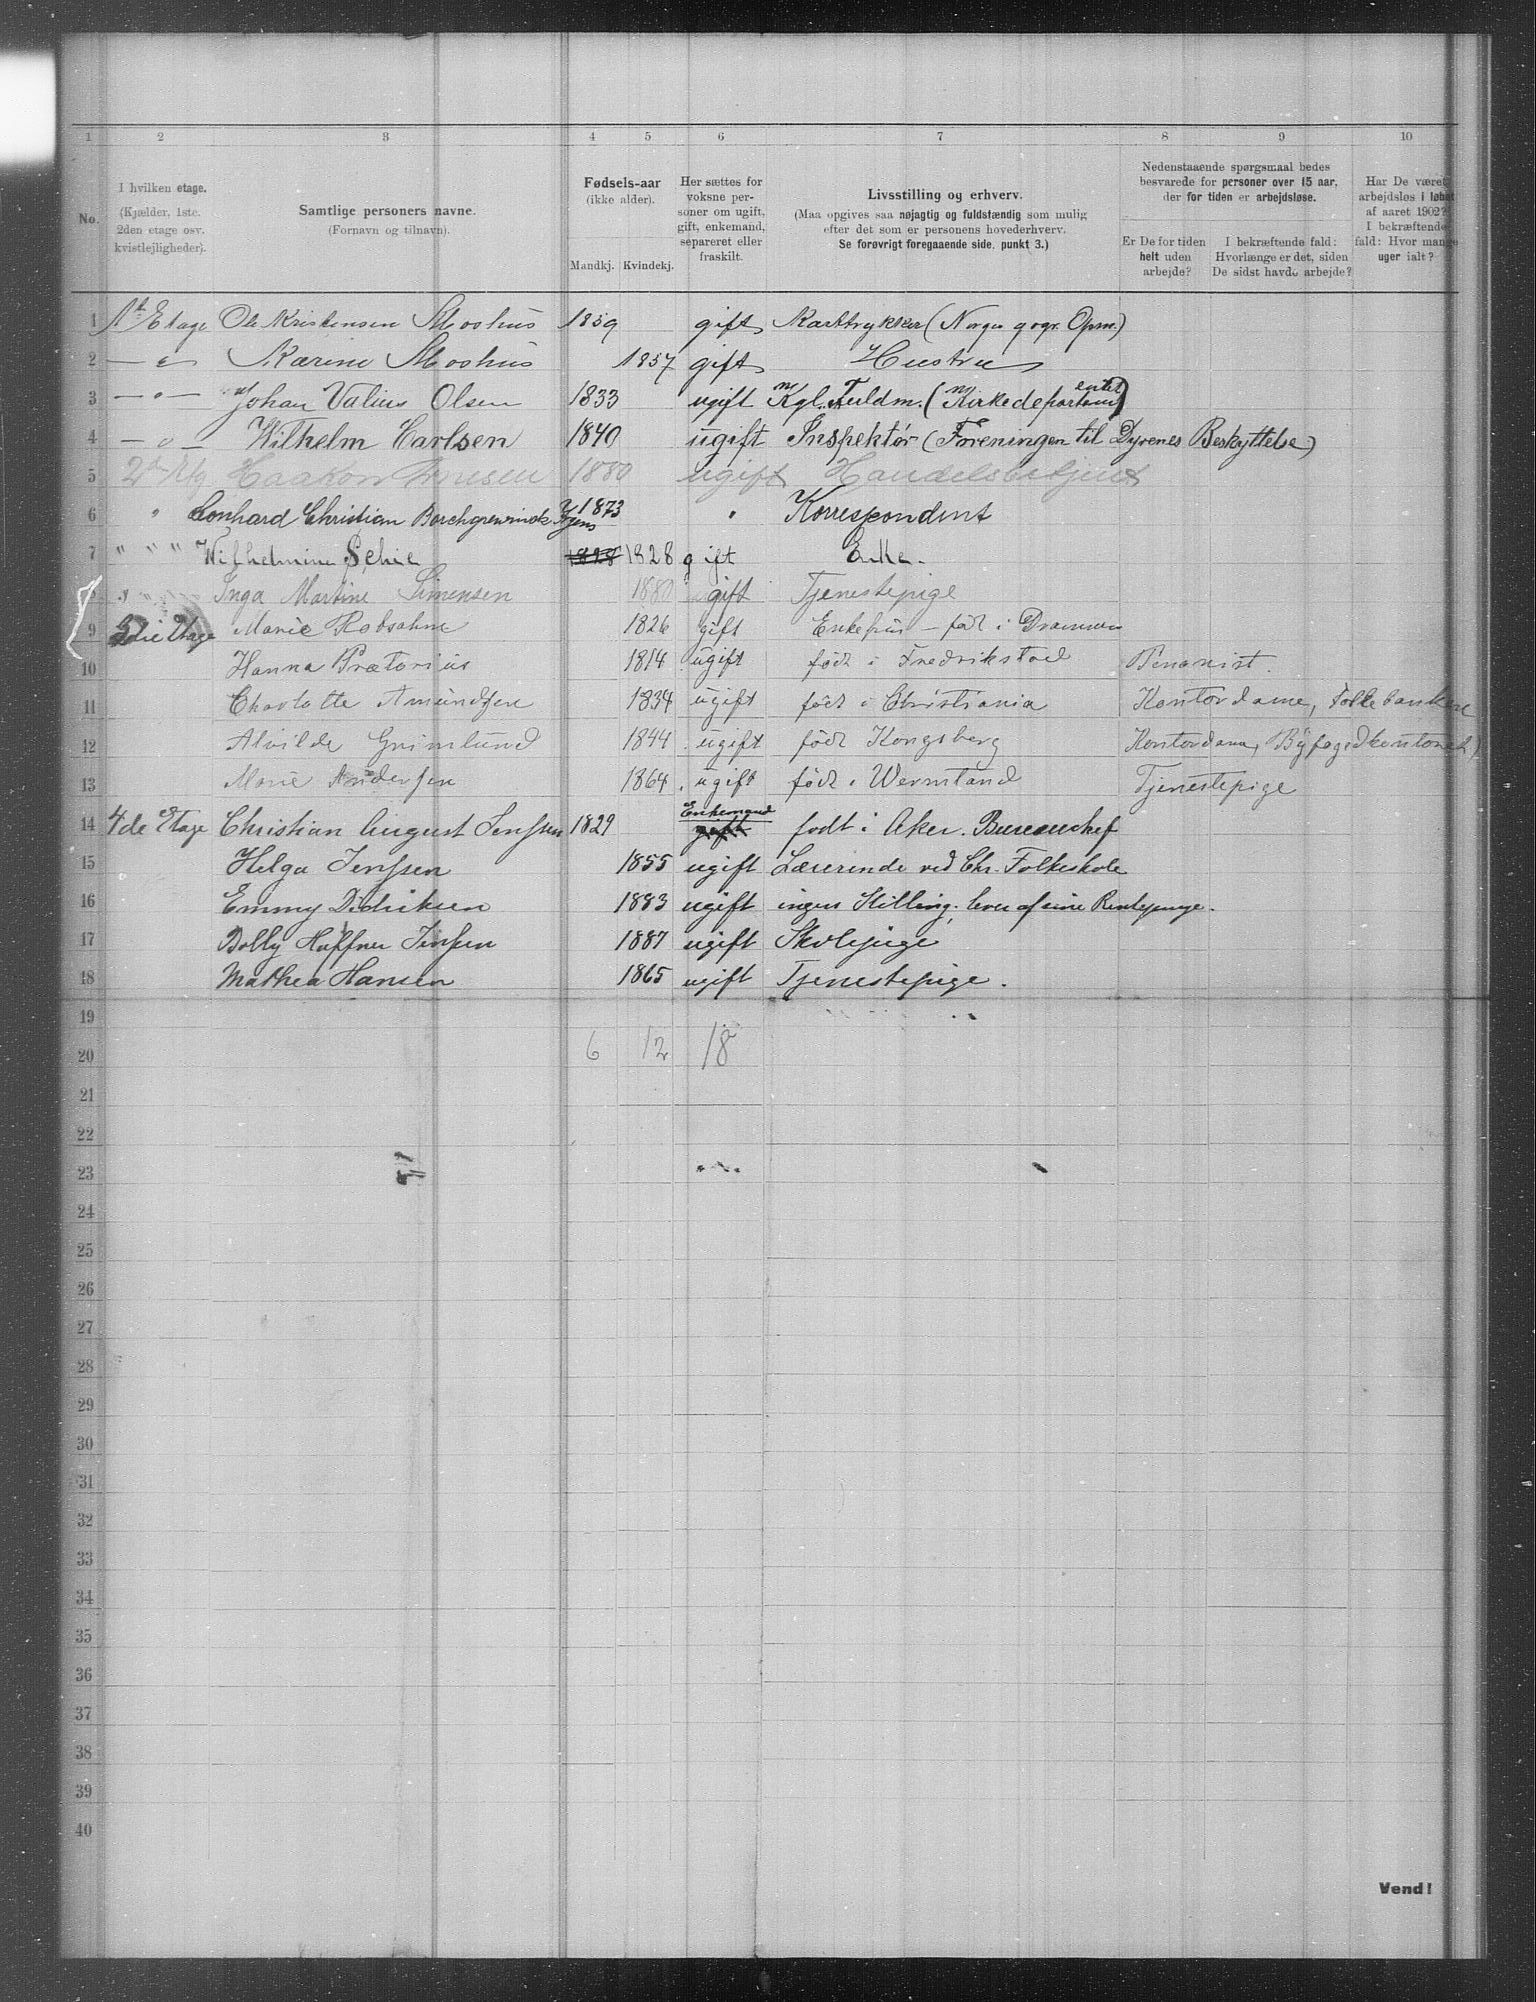 1 2 3 4 5 6 7 8 9 10
No.
I hvilken etage.
(Kjælder, 1ste.
2den etage osv.
kvistlejligheder).
Samtlige personers navne.
(Fornavn og tilnavn).
Fødsels-aar
(ikke alder).
Mandkj. Kvindekj.
Her sættes for
voksne per-
soner om ugift,
gift, enkemand,
separeret eller
fraskilt.
Livsstilling og erhverv.
(Maa opgives saa nøjagtig og fuldstændig som mulig
efter det som er personens hovederhverv.
Se forøvrigt foregaaende side, punkt 3.)
Nedenstaaende spørgsmaal bedes
besvarede for personer over 15 aar,
der for tiden er arbejdsløse.
Er De for tiden
helt uden
arbejde?
I bekræftende fald:
Hvorlænge er det, siden
De sidst havde arbejde?
Har De været
arbejdsløs i løbet
af aaret 1902?
I bekræftende
fald: Hvor mange
uger ialt?
1 1st Etage Ole Kristensen Moshus 1859 gift Karttrykker (Norges geogr. Opm.)
2 — " — Karine Moshus 1857 gift Hustru
3 — " — Johan Valius Olsen 1833 ugift Kgl. Fuldm. (Kirkedepartementet)
4 — " — Wilhelm Carlsen 1840 ugift Inspektør (Foreningen til Dyrenes Beskyttelse)
5 Haakon 1880 ugift Handelsbetjent
6 " Leonhard Christian Borchgrevinck 1873 " Korrespondent
7 " " " Wilhelmine Schie 1828 1828 gift Enke.
8 " " Inga Martine Simensen 1880 ugift Tjenestepige
9 3die Etage Marie Robsahm 1826 gift Enkefru – født i Drammen
10 Hanna Prætorius 1814 ugift født i Fredrikstad Pensonist.
11 Charlotte Amundsen 1834 ugift født i Christiania Kontordame, Folkebanken
12 Alvilde Grimlund 1844 ugift født Kongsberg Kontordame, Byfogedkontoret)
13 Marie Andersen 1864 ugift født i Wermland Tjenestepige
14 4de Etage Christian August Jenssen 1829 Enkemand gift født i Aker. Bureauchef
15 Helga Jenssen 1855 ugift Lærerinde ved Chr. Folkeskole
16 Emmy Didriksen 1883 ugift ingen Stilling, lever af sine Rentepenge.
17 Dolly Haffner Jenssen 1887 ugift Skolepige
18 Mathea Hansen 1865 ugift Tjenestepige.
19
20 6 12 18
21
22
23
24
25
26
27
28
29
30
31
32
33
34
35
36
37
38
39
40
Vend!